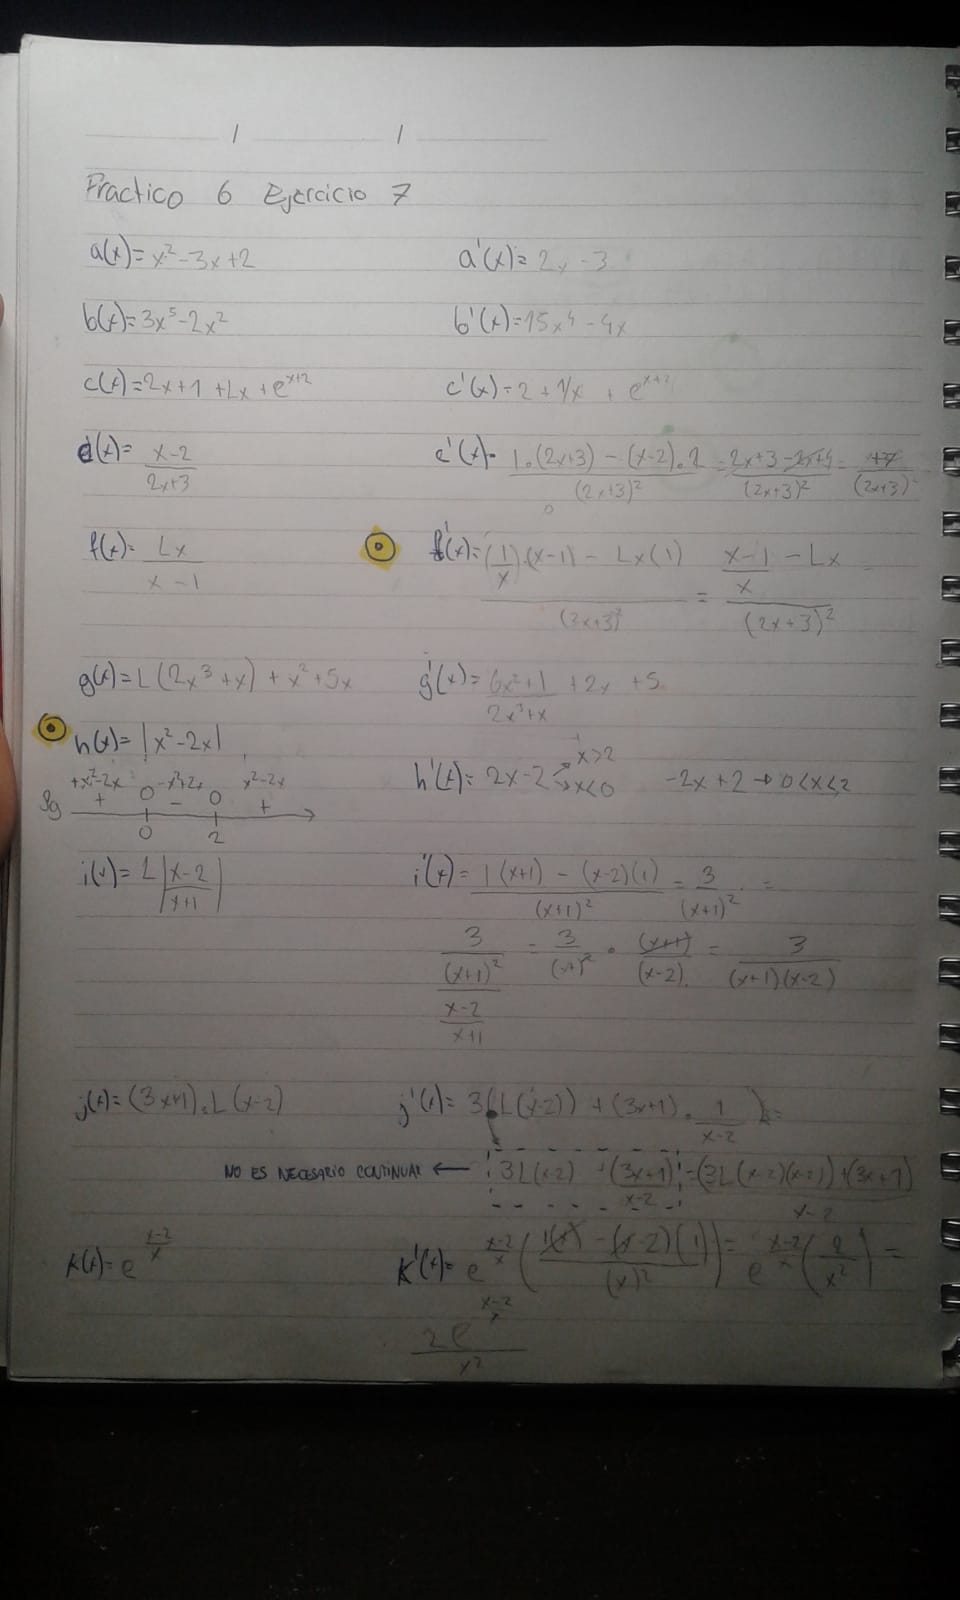 Practico 6 Ejercicio 7
a(x)= x²-3x+2 a'(x)= 2x-3
b(x)=3x⁵-2x² b'(x)=15x⁴-4x
c(x)=2x+1+Lx+e^(x+2) c'(x)=2+1/x + e^(x+2)
d(x)= (x-2)/(2x+3) e'(x)= (1.(2x+3)-(x-2).2)/(2x+3)² = (2x+3-2x+4)/(2x+3)² = +7/(2x+3)²
f(x)= Lx/(x-1) f'(x)= ((1/x).(x-1) - Lx(1))/(2x+3)² = ((x-1)/x - Lx)/(2x+3)²
g(x)=L(2x³+x)+x²+5x g'(x)= (6x²+1)/(2x³+x) +2x +5
h(x)= |x²-2x| h'(x)= 2x-2 x>2 x<0 -2x+2→0<x<2
+x²-2x 0 -x²+2x 0 x²-2x
Sg + - +
0 2
i(x)= L|(x-2)/(x+1)| i'(x)= (1(x+1) - (x-2)(1))/(x+1)² = 3/(x+1)² =
(3/(x+1)²)/((x-2)/(x+1)) = 3/(x+1)² • (x+1)/(x-2) = 3/((x+1)(x-2))
j(x)=(3x+1).L(x-2) j'(x)= 3(L(x-2)) + (3x+1). 1/(x-2) =
NO ES NECESARIO CONTINUAR ← 3L(x-2) + (3x+1)/(x-2) = ((3L(x-2)(x-2))+(3x+1))/(x-2)
k(x)= e^((x-2)/x) k'(x)= e^((x-2)/x) ((1(x) - (x-2)(1))/(x)²) = e^((x-2)/x) (2/x²) =
2e^((x-2)/x)/x²